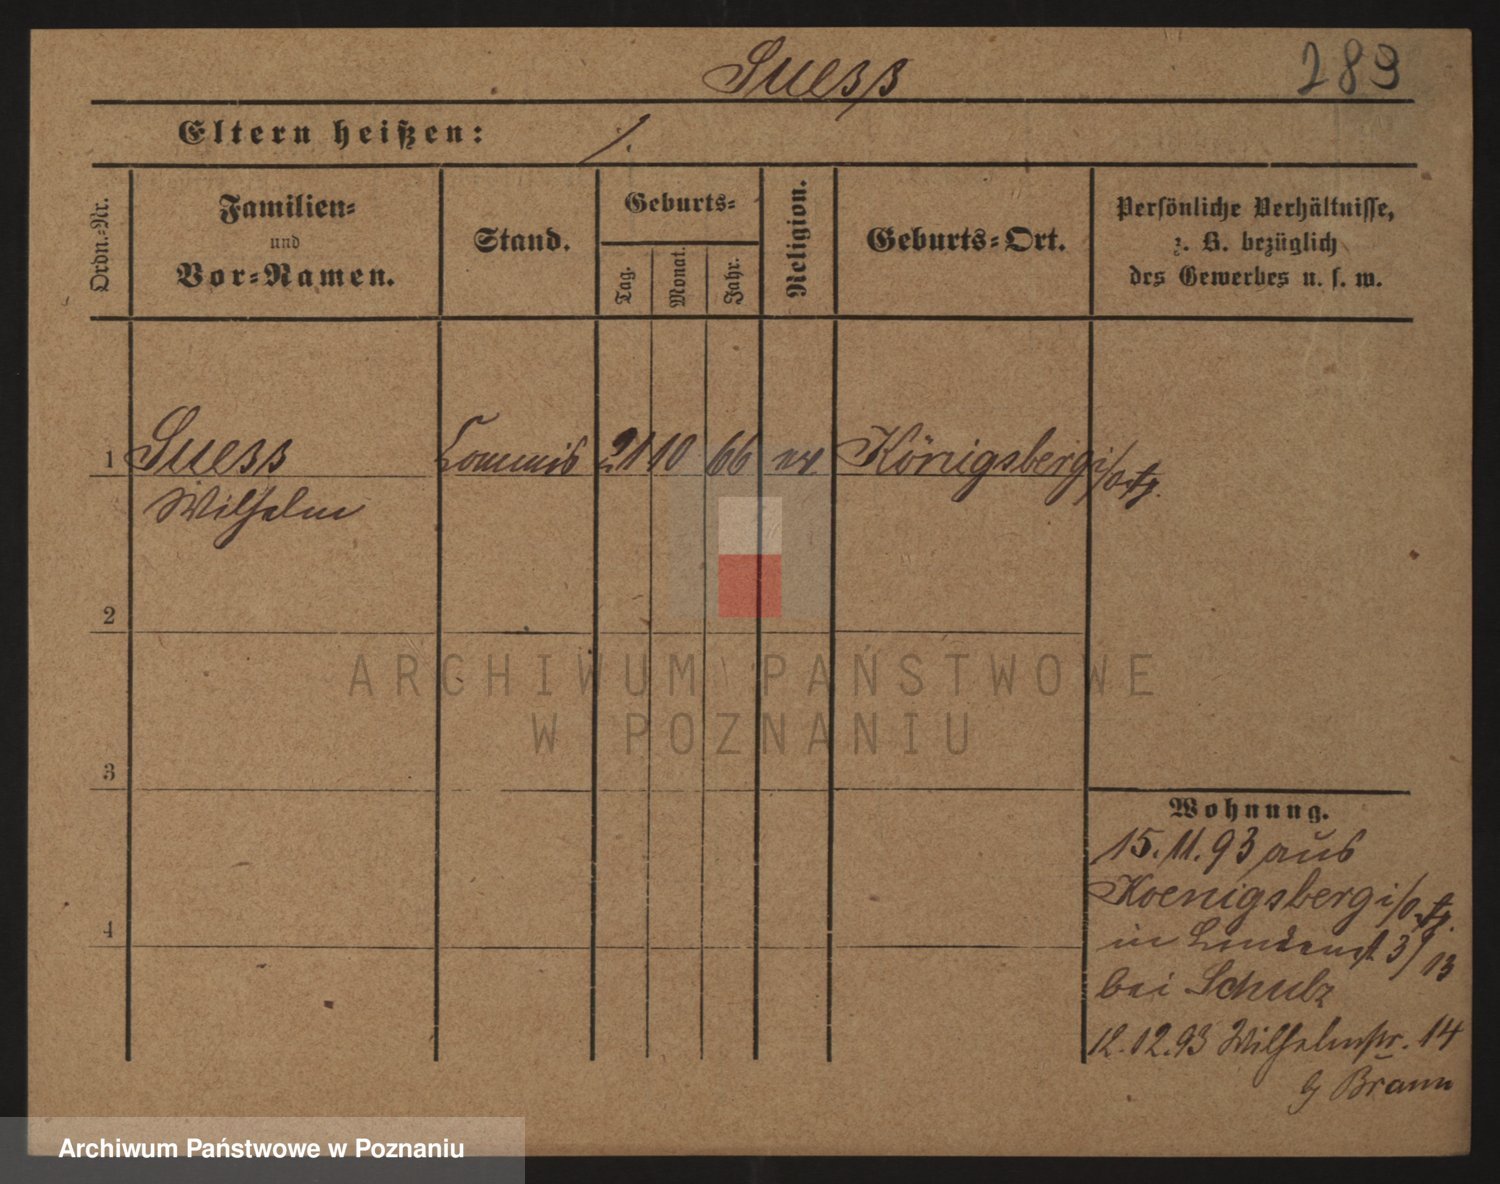 Suess
289
Eltern heißen: /.
Ordn.-Nr.
Familien-
und
Vor-Namen.
Stand.
Geburts-
Tag.
Monat.
Jahr.
Religion.
Geburts-Ort.
Persönliche Verhältnisse,
z. B. bezüglich
des Gewerbes u. s. w.
1 Suess Commis 21 10 66 ev Königsberg i/O.Pr.
Wilhelm
2
3
4
Wohnung.
15.11.93 aus
Koenigsberg i/O.Pr.
in 3/13
bei Schulz
12.12.93 Wilhelmstr. 14
b/ Braun
ARCHIWUM PAŃSTWOWE
W POZNANIU
Archiwum Państwowe w Poznaniu